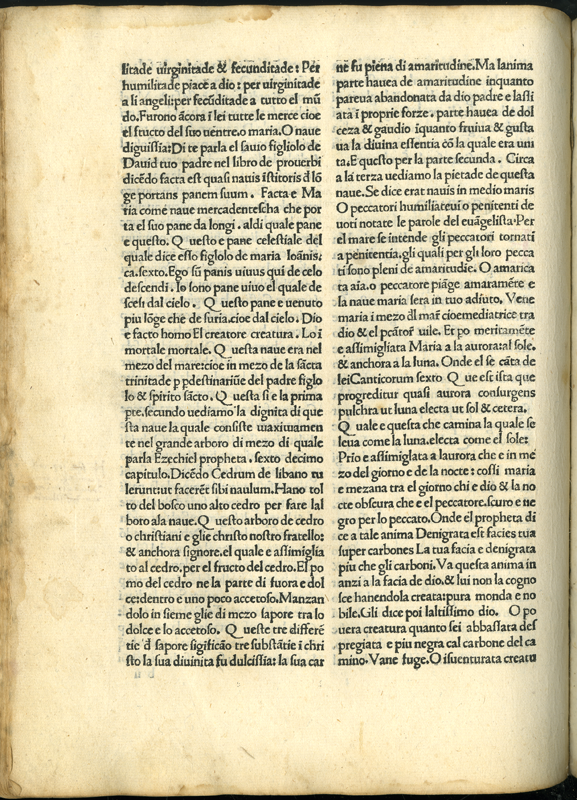 litade uirginitade & fecunditade: Per
humilitade piace a dio: per uirginitade
a li angeli:per fecũditade a tutto el mũ
do.Furono ãcora ĩ lei tutte le merce cioe
el fructo del suo uentre.o maria.O naue
dignissia:Di te parla el sauio figliolo de
Dauid tuo padre nel libro de prouerbi
dicẽdo facta est quasi nauis ĩstitoris d lõ
ge portans panem suum. Facta e Ma
ria come naue mercadentescha che por
ta el suo pane da longi. aldi quale pane
e questo. Questo e pane celestiale del
quale dice esso figlolo de maria Ioãnis:
ca.sexto.Ego sũ panis uiuus qui de celo
descendi. Io sono pane uiuo el quale de
scesi dal cielo. Questo pane e uenuto
piu lõge che de suria.cioe dal cielo: Dio
e facto homo El creatore creatura. Lo ĩ
mortale mortale. Questa naue era nel
mezo del mare:cioe in mezo de la sãcta
trinitade p pdestinatiõe del padre figlo
lo & spirito sãcto. Questa si e la prima
pte.secundo uediamo la dignita di que
sta naue la quale consiste maximamen
te nel grande arboro di mezo di quale
parla Ezechiel propheta. sexto decimo
capitulo.Dicẽdo Cedrum de libano tu
lerunt:ut facerẽt sibi naulum.Hano tol
to del bosco uno alto cedro per fare lal
boro ala naue. Questo arboro de cedro
o christiani e glie christo nostro fratello:
& anchora signore.el quale e assimiglia
to al cedro.per el fructo del cedro.El po
mo del cedro ne la parte di fuora e dol
ce:dentro e uno poco accetoso.Manzan
dolo in sieme glie di mezo sapore tra lo
dolce e lo accetoso. Queste tre differẽ
tie d sapore sigificão tre substãtie ĩ chri
sto la sua diuinita fu dulcissia: la sua car
ne fu piena di amaritudine.Ma lanima
parte hauea de amaritudine inquanto
pareua abandonata da dio padre e lassi
ata ĩ proprie forze. parte hauea de dol
ceza & gaudio ĩquanto fruiua & gusta
ua la diuina essentia cõ la quale era uni
ta.E questo per la parte secunda. Circa
a la terza uediamo la pietade de questa
naue.Se dice erat nauis in medio maris
O peccatori humiliateui o penitenti de
uoti notate le parole del euãgelista.Per
el mare se intende gli peccatori tornati
a penitentia.gli quali per gli loro pecca
ti sono pleni de amaritudie. O amarica
ta aia.o peccatore piãge amaramẽte e
la naue maria sera in tuo adiuto. Vene
maria ĩ mezo dl mar cioe mediatrice tra
dio & el pcator uile. Et po meritamẽte
e assimigliata Maria a la aurora:al sole.
& anchora a la luna. Onde el se cãta de
lei Canticorum sexto Que est ista que
progreditur quasi aurora consurgens
pulchra ut luna electa ut sol & cetera.
Quale e questa che camina la quale se
leua come la luna.electa come el sole:
Prio e assimiglata a laurora che e in me
zo del giorno e de la nocte: cossi maria
e mezana tra el giorno chi e dio & la no
cte obscura che e el peccatore.scuro e ne
gro per lo peccato.Onde el propheta di
ce a tale anima Denigrata est facies tua
super carbones La tua facia e denigrata
piu che gli carboni. Va questa anima in
anzi a la facia de dio.& lui non la cogno
sce hanendola creata:pura monda e no
bile.Gli dice poi laltissimo dio. O po
uera creatura quanto sei abbassata des
pregiata e piu negra cal carbone del ca
mino.Vane fuge.O isuenturata creatu